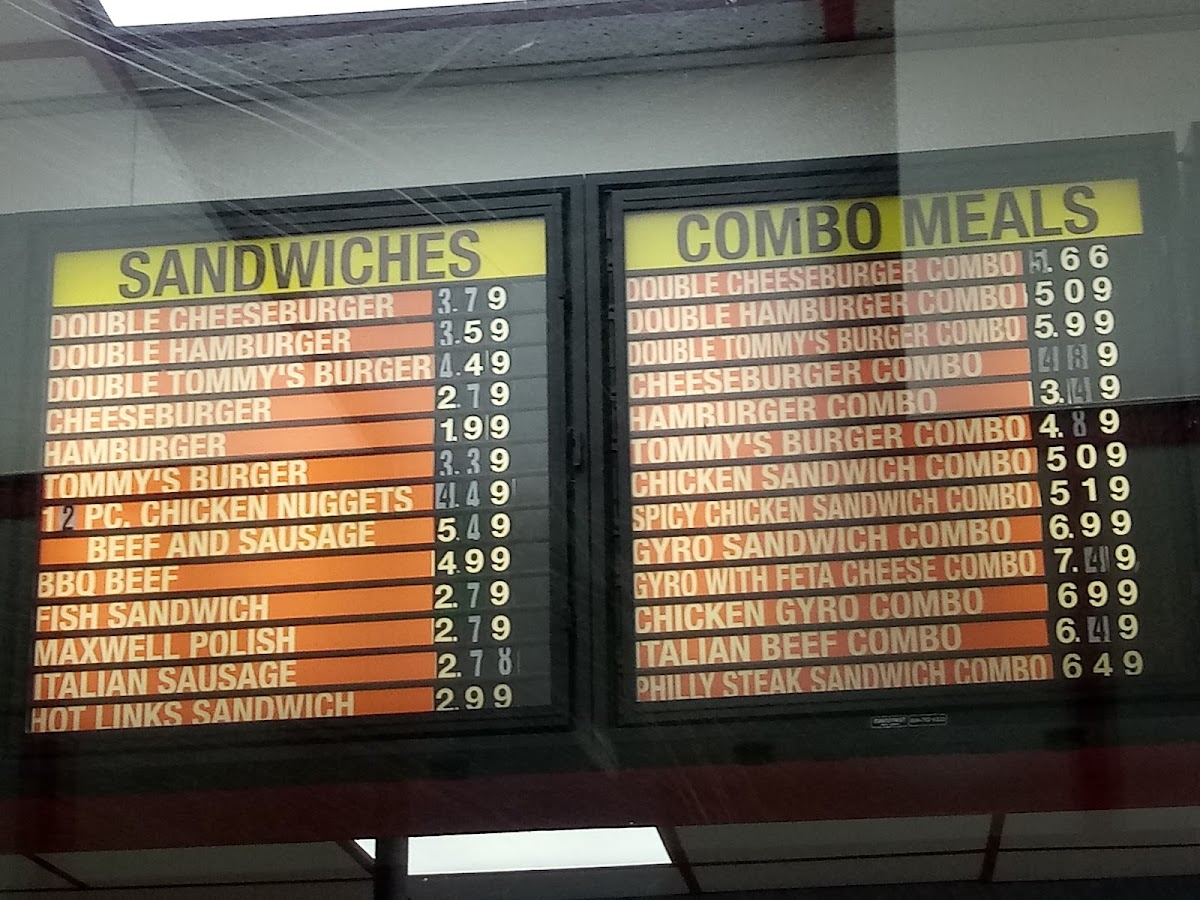 SANDWICHES
DOUBLE CHEESEBURGER 3.79
DOUBLE HAMBURGER 3.59
DOUBLE TOMMY'S BURGER 4.49
CHEESEBURGER 2.79
HAMBURGER 1.99
TOMMY'S BURGER 3.39
12 PC. CHICKEN NUGGETS 4.49
BEEF AND SAUSAGE 5.49
BBQ BEEF 4.99
FISH SANDWICH 2.79
MAXWELL POLISH 2.79
ITALIAN SAUSAGE 2.78
HOT LINKS SANDWICH 2.99
COMBO MEALS
DOUBLE CHEESEBURGER COMBO 5.66
DOUBLE HAMBURGER COMBO 509
DOUBLE TOMMY'S BURGER COMBO 5.99
CHEESEBURGER COMBO 489
HAMBURGER COMBO 3.49
TOMMY'S BURGER COMBO 4.89
CHICKEN SANDWICH COMBO 509
SPICY CHICKEN SANDWICH COMBO 519
GYRO SANDWICH COMBO 6.99
GYRO WITH FETA CHEESE COMBO 7.49
CHICKEN GYRO COMBO 699
ITALIAN BEEF COMBO 6.49
PHILLY STEAK SANDWICH COMBO 649